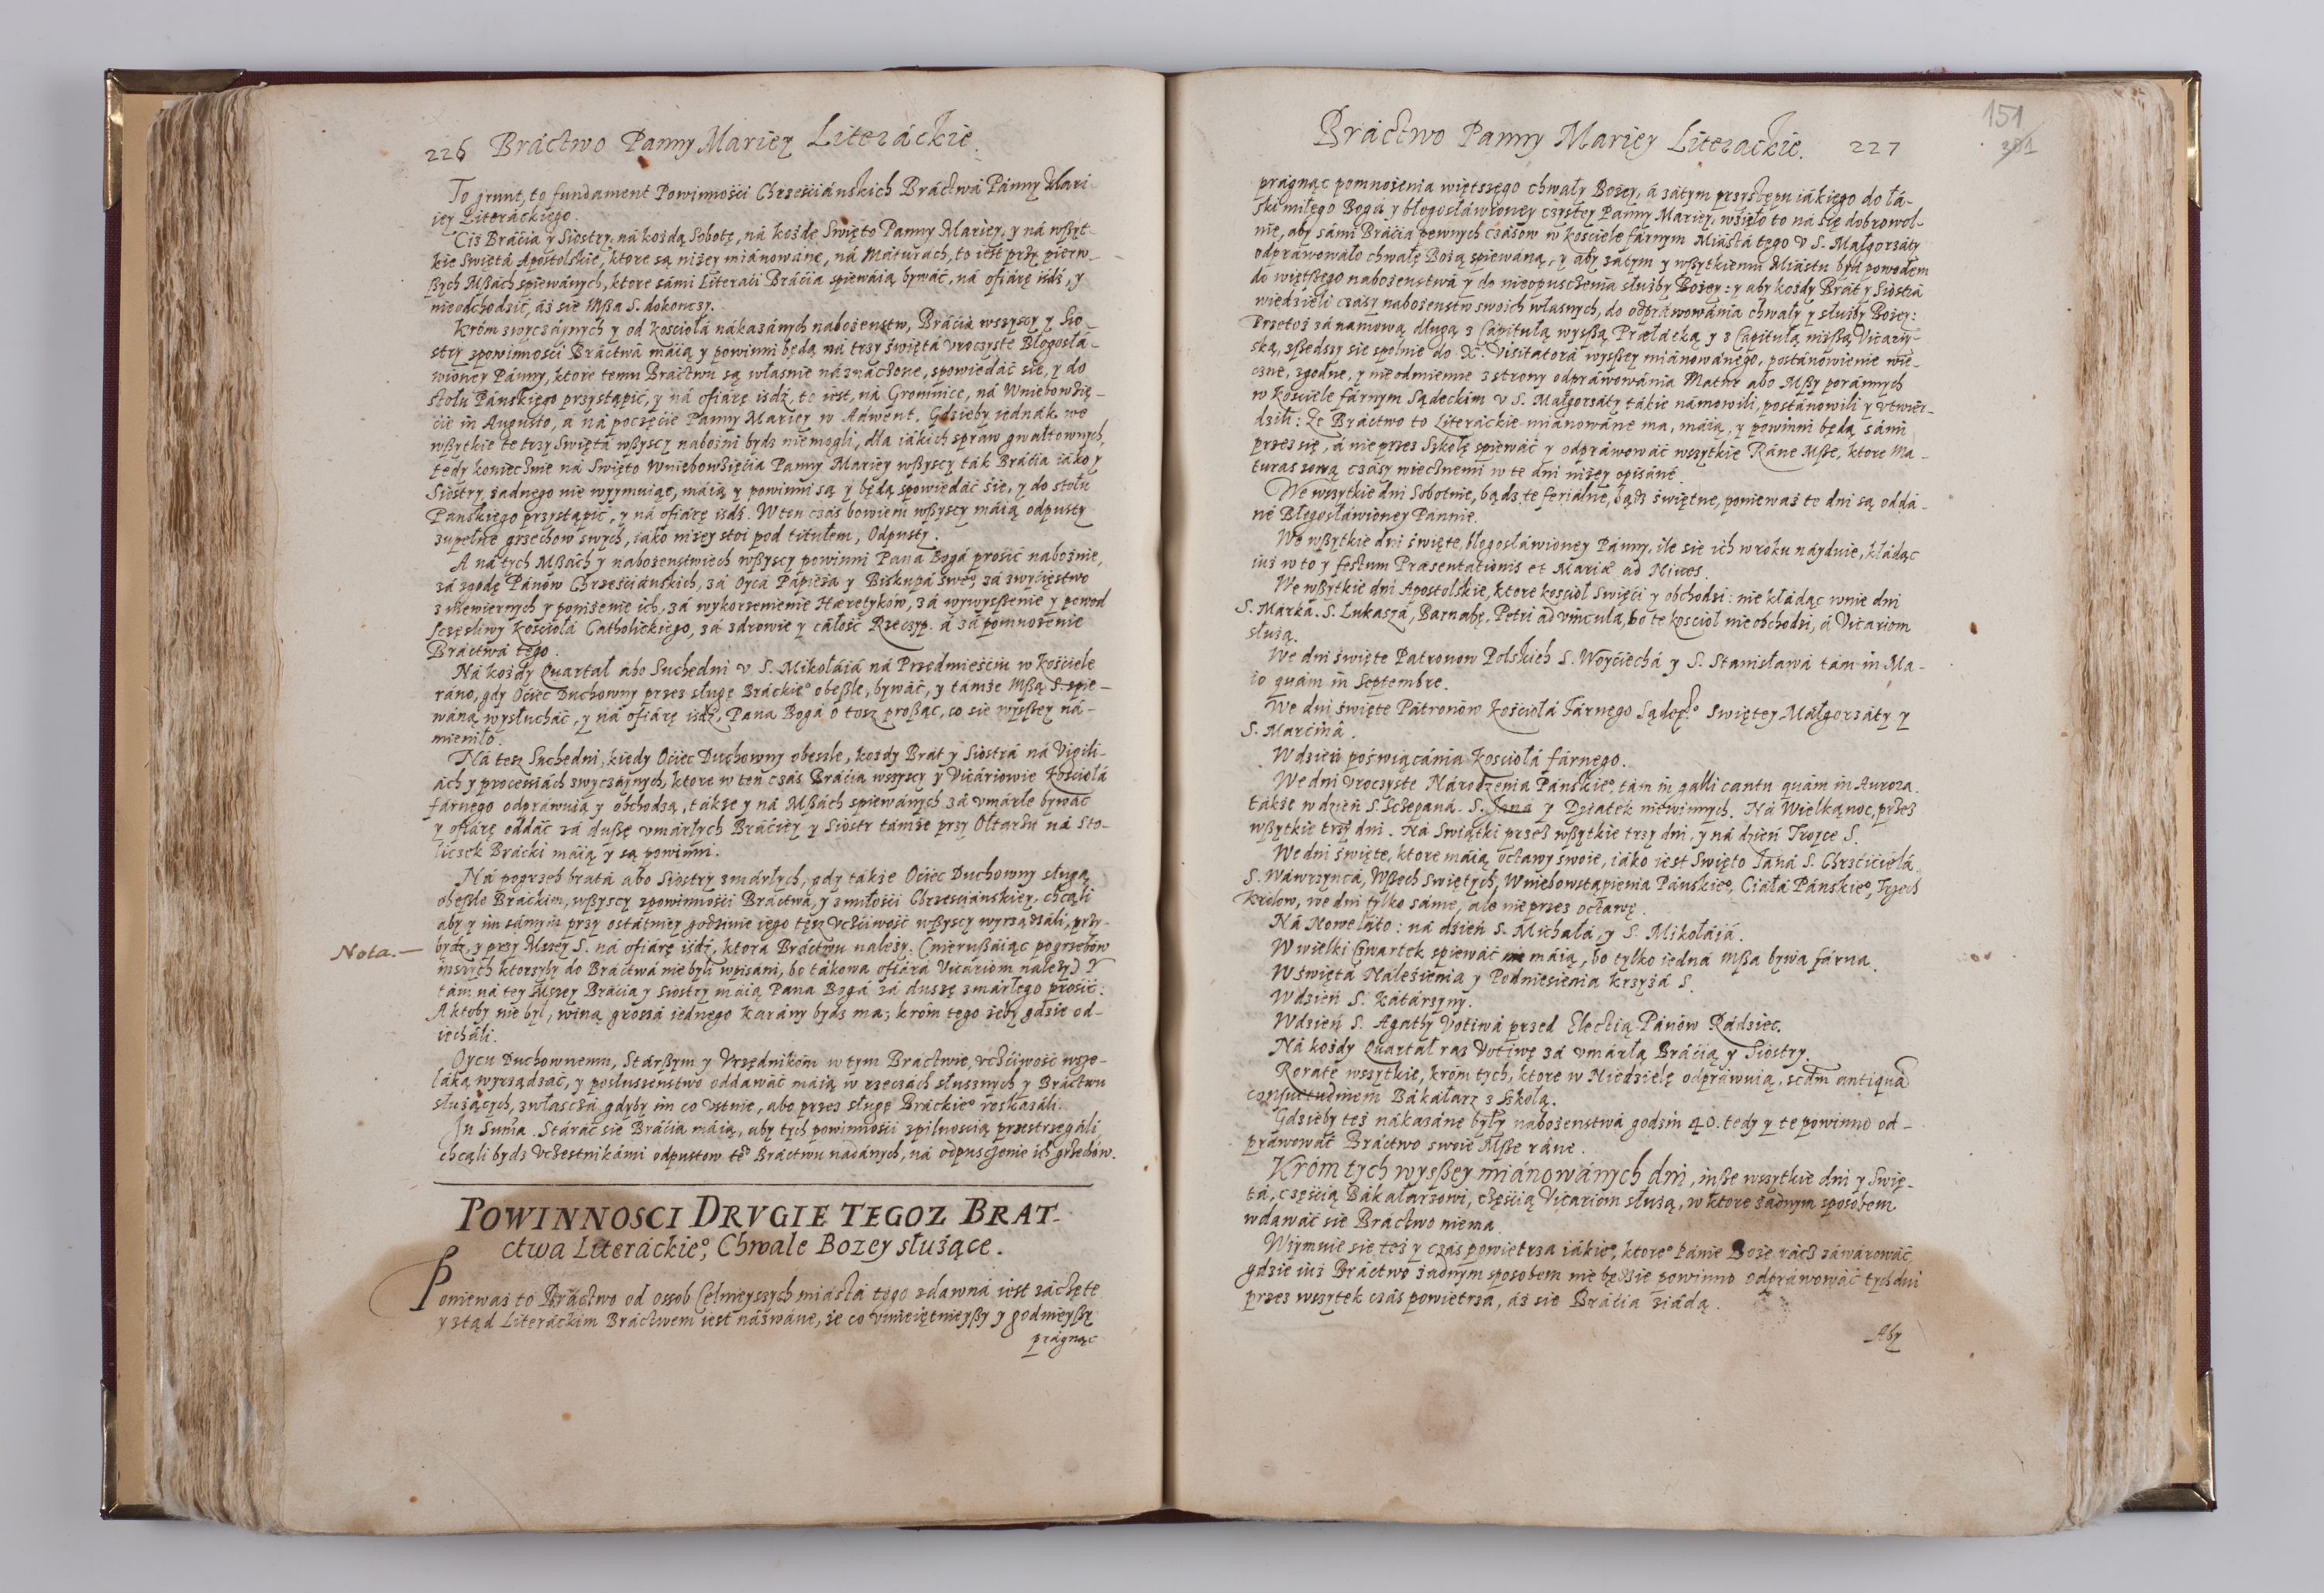 226 Bráctwo Panny Mariey Literáckie.
To grunt, to fundament Powinnośći Chrześćiánskich Bráctwá Pánny Mari-
iey Literáckiego.
Ciż Bráćia y Siostry, ná kożdą Sobotę, ná kożdę Swięto Panny Mariey, y ná wßyt-
kie Swiętá Apostolskie, ktore są niżey miánowáne, ná Máturách, to iest przy pierw-
ßych Mßách spiewánych, ktore sámi Literaći Bráćia spiewáią bywáć, ná ofiárę iśdź, y
nieodchodźić, áż sie Mßa S. dokończy.
Króm zwyczáynych y od kośćiołá nákazánych nabożenstw, Bráćia wszyscy y Sio-
stry zpowinnośći Bráctwá máią y powinni będą ná trzy święta vroczyste Błogosłá-
wioney Pánny, ktore temu Bráctwu są własnie náznáczone, spowiedáć sie, y do
stołu Pánskiego przystąpić, y ná ofiárę iśdź, to iest, ná Gromnice, ná Wniebowźię-
ćie in Augusto, á ná poczęćie Panny Mariey w Adwent. Gdzieby iednák we
wßytkie te trzy Swiętá wßyscy nabożni bydź niemogli, dla iákich spraw gwałtownych,
tedy koniecznie ná Swięto Wniebowźięćia Panny Mariey wßyscy ták Bráćia iáko y
Siostry, żadnego nie wyymuiąc, máią y powinni są y będą spowiedáć śie, y do stołu
Pánskiego przystąpić, y ná ofiárę iśdź. W ten czás bowiem wßyscy máią odpusty
zupełne grzechow swych, iáko niżey stoi pod titułem, Odpusty.
A ná tych Mßách y nabożenstwiech wßyscy powinni Páná Bogá prośić nabożnie,
zá zgodę Pánów Chrześćiánskich, zá Oycá Papieżá y Biskupá sweº, zá zwyćięstwo
z niewiernych y poniżenie ich, zá wykorzenienie Hæretyków, zá wywyzßenie y powod
szczęśliwy Kośćiołá Catholickiego, zá zdrowie y cáłość Rzeczyp. á zá pomnożenie
Bráctwá tego.
Ná kożdy Quartał ábo Suchedni v S. Mikołáiá ná Przedmieśćiu w kośćiele
ráno, gdy Oćiec Duchowny przez sługę Bráckieº obeßle, bywáć, y támże Mßą S. spie-
wáną wysłucháć, y ná ofiárę iśdź, Pana Bogá o tosz proßąc, co sie wyßßey ná-
mieniło.
Ná tesz Suchedni, kiedy Oćiec Duchowny obeszle, kożdy Brát y Siostrá ná Vigili-
ách y processiách zwyczáynych, ktore w ten czás Bráćia wszyscy y Vicáriowie Kośćiołá
fárnego odpráwuią y obchodzą, tákże y ná Mßách spiewánych zá vmárłe bywáć
y ofiárę oddáć zá duße vmárłych Bráćiey y Siostr támże przy Ołtarzu ná Sto-
liczek Brácki máią y są powinni.
Ná pogrzeb brátá ábo Siostry zmárłych, gdy tákże Oćiec Duchowny sługą
obeßle Bráckim, wßyscy zpowinnośći Bráctwá, y z miłośći Chrześćiánskiey, chcąli
áby y im sámym przy ostátniey godzinie iego tęsz vczćiwość wßyscy wyrządzáli, przy-
bydź, y przy Mszey S. ná ofiárę iśdź, ktora Bráctwu należy. (nierußáiąc pogrzebów
inszych ktorzyby do Bráctwá nie byli wpisáni, bo tákowa ofiárá Vicáriom należy) Y
tám ná tey Mszey Bráćia y Siostry máią Pana Bogá zá duszę zmárłego prośić.
A ktoby nie był, winą groszá iednego karány bydź ma; króm tego żeby gdzie od-
iecháli.
Nota.—
Oycu Duchownemu, Stárßym y Vrzędnikóm w tym Bráctwie, vczćiwość wsze-
láką wyrządzáć, y posłuszenstwo oddawáć máią w rzeczách słusznych y Bráctwu
służących, zwłaszczá gdyby im co vstnie, ábo przez sługę Bráckieº roskazáli.
In Suma. Stáráć sie Bráćia máią, áby tych powinnośći zpilnośćią przestrzegáli
chcąli bydź vczestnikámi odpustow teº Bráctwu nádánych, ná odpusczenie ich grzechów.
POWINNOSCI DRVGIE TEGOZ BRAT-
ctwa Literáckieº, Chwale Bozey służące.
Poniewaz to Bráctwo od ossob Celnieyszych miástá tego zdawná iest záczęte
y ztąd Literáckim Bráctwem iest názwáne, że co vmieiętnieyßy y godnieyßy
prágnąc
Bráctwo Panny Mariey Literackie. 227
151
301
prágnąc pomnożenia więtszego chwały Bożey, á zátym przystępu iákiego do łá-
ski miłego Bogá y błogosłáwioney czystey Panny Mariey, wźięło to ná się dobrowol-
nie, aby sámi Bráćia pewnych czásow w kośćiele fárnym Miástá tego v S. Małgorzáty
odpráwowáło chwałę Bożą spiewáną, y áby zátym y wßytkiemu Miástu był powodem
do więtßego nabożenstwá y do nieopusczenia służby Bożey: y aby kożdy Brát y Siostrá
wiedźieli czásy nabożenstw swoich własnych, do odpráwowánia chwały y służby Bożey:
Przetoż zá namową długą z Cápitułą wyßßą Præłácką y z Cápitułą niżßą Vicáry-
ską, zßedszy sie spolnie do X. Visitatorá wyßßey miánowánego, postánowienie wie-
czne, zgodne, y nieodmienne z strony odpráwowánia Matur abo Mßy poránnych
w Kośćiele fárnym Sądeckim v S. Małgorzáty tákie námowili, postánowili y vtwier-
dźili: Ze Bráctwo to Literáckie miánowáne ma, máią, y powinni będą sámi
przez się, á nie przez Szkołę spiewáć y odpráwowáć wszytkie Ráne Mße, ktore Ma-
turas zową czásy wiecznemi w te dni niżey opisáne.
We wszytkie dni Sobotnie, bądź te feriálne, bądź świętne, poniewaz te dni są oddá-
ne Błogosłáwioney Pánnie.
We wßytkie dni święte, błogosłáwioney Pánny, ile sie ich w roku náyduie, kłádąc
iuż w to y festum Præsentationis et Mariæ ad Nives.
We wßytkie dni Apostolskie, ktore kośćioł święći y obchodzi: nie kłádąc wnie dni
S. Márká. S. Lukaszá, Barnabę, Petri ad vincula, bo te kośćioł nie obchodźi, á Vicáriom
służą.
We dni święte Patronow Polskich S. Woyćiechá y S. Stánisłáwá tám in Ma-
io quám in Septembre.
We dni święte Pátronów Kośćiołá Fárnego Sądecº. Swiętey Małgorzáty y
S. Marćiná.
W dzień poświącánia Kośćiołá fárnego.
We dni vroczyste Národzenia Pánskieº, tám in galli cantu quám in Aurora.
tákże w dźień S. Sczepaná. S. Janá y Dźiatek niewinnych. Ná Wielkąnoc, przez
wßytkie trzy dni. Ná Swiątki przez wßytkie trzy dni, y ná dźień Troyce S.
We dni święte, ktore máią octawy swoie, iáko iest Swięto Janá S. Chrzćićielá.
S. Wáwrzyńcá, Wßech Swiętych, Wniebowstąpienia Pánskieº, Ciáłá Pánskieº, Trzech
Królow, we dni tylko sáme, ále nie przez octawę.
Ná Nowe láto: ná dźień S. Michałá, y S. Mikołáiá.
W wielki Czwartek spiewáć nie máią, bo tylko iedná Mßa bywa fárna.
W Swiętá Náleźienia y Podniesienia Krzyżá S.
W dźień S. Kátárzyny.
W dźień S. Agáthy Votiwá przed Electią Pánów Rádziec.
Ná kożdy Quartał raz Votiwę zá vmárłą Bráćią y Siostry.
Rorate wszytkie, króm tych, ktore w Niedzielę odpráwuią, scdm antiquá
consuetudinem Bákáłarz z Szkołą.
Gdzieby też nákazáne były nabożenstwá godzin 40. tedy y te powinno od-
práwowáć Bráctwo swoie Mße ráne.
Króm tych wyßßey miánowánych dni, inße wszytkie dni y Swię-
tá, częśćią Bákałarzowi, częśćią Vicáriom służą, w ktore żadnym sposobem
wdawáć sie Bráctwo niema.
Wyymuie sie też y czás powietrza iákieº, ktoreº Pánie Boże rácz záwárowáć,
gdzie iuż Bráctwo żadnym sposobem nie będźie powinno odpráwowáć tych dni
przez wszytek czás powietrza, áż sie Bráćia ziádą.
Aby